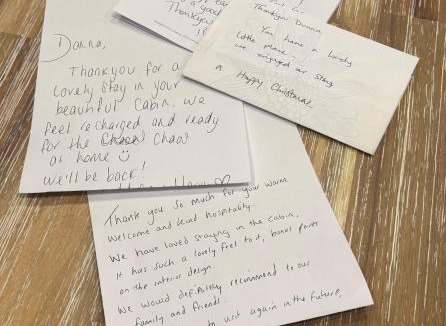 Thankyou
Donna,
Thankyou for a
lovely stay in your
beautiful Cabin. We
feel recharged and ready
for the Chaos
at home
we'll be back!
Thankyou Donna
You have a lovely
little place
we enjoyed our stay
Happy Christmas
Thank you so much for your warm
welcome and kind hospitality.
We have loved staying in the cabin,
it has such a lovely feel to it, bonus points
on the interior design.
We would definitely recommend to our
family and friends
to visit again in the future,